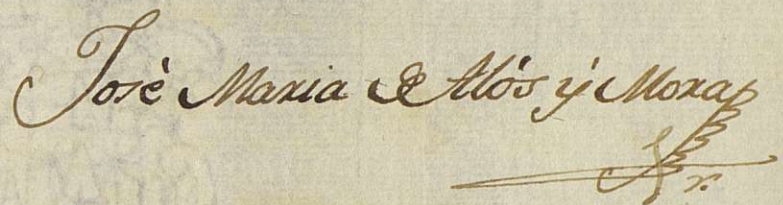 Josè Maria de Alós ÿ Mora